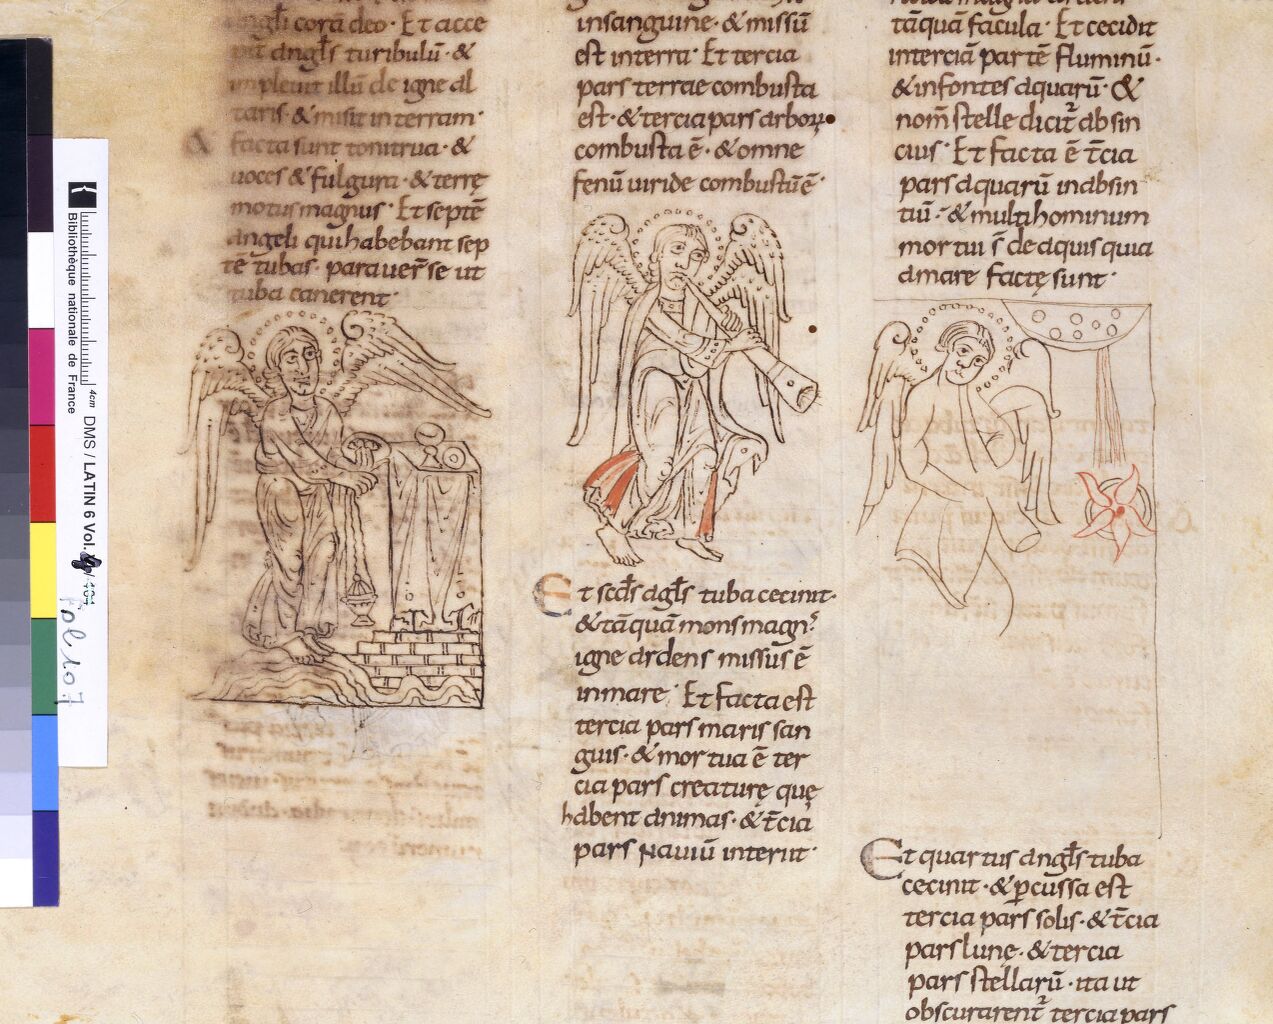 angl̃i corā deo · Et acce
pit angl̃s turibulū · &
impleuit illū de igne al
taris · & misit in terram ·
& facta sunt tonitrua · &
uoces & fulgura · & terrę
motus magnus · Et septē
angeli qui habebant sep
tē tubas · parauer̃ se ut
tuba canerent ·
in sanguine · & missū
est in terra · Et tercia
pars terrae combusta
est · & tercia pars arborꝝ
combusta ē · & omne
fenū uiride combustū ē ·
Et scd̃s agl̃s tuba cecinit ·
& tāquā mons magn᾽
igne ardens missus ē
in mare · Et facta est
tercia pars maris san
guis · & mortua ē ter
cia pars creaturę quę
habent animas · & t̃cia
pars nauiū interiit ·
tāquā facula · Et cecidit
in terciā partē fluminū ·
& in fontes aquarū · &
nom̃ stelle dicit᷑ absin
cius · Et facta ē t̃cia
pars aquarū in absin
tiū · & multi hominum
mortui s̄ de aquis quia
amare factę sunt ·
Et quartus angl̃s tuba
cecinit · & ꝑcussa est
tercia pars solis · & t̃cia
pars lunę · & tercia
pars stellarū · ita ut
obscurarent᷑ tercia pars
Bibliothèque nationale de France
4cm
DMS / LATIN 6 Vol.
fol 107